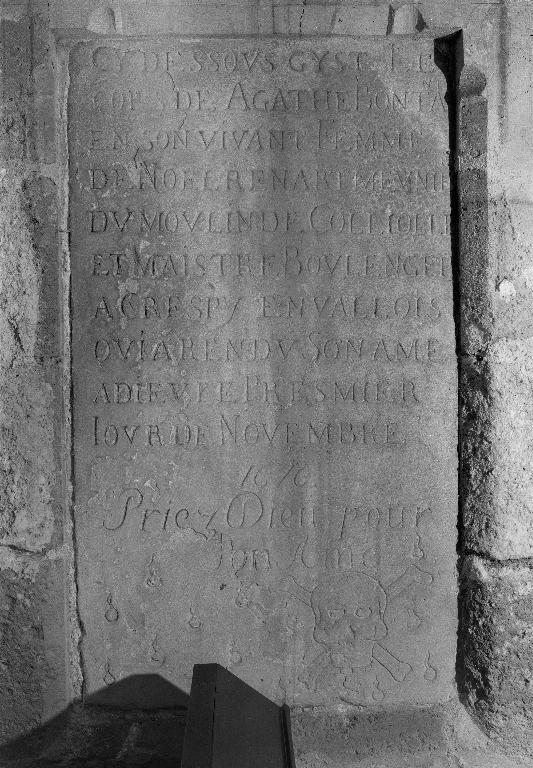 CY DESSOVS GYST LE
CORPS DE AGATHE BONTA
EN SON VIVANT FEMME
DE NOEL RENART MEVNIE
DV MOVLIN DE COLLIOLLE
ET MAISTRE BOVLENGER
A CRESPY EN VALLOIS
QVI A RENDV SON AME
A DIEV LE PRESMIER
IOVR DE NOVEMBRE
1676
Priez Dieu pour
son Ame